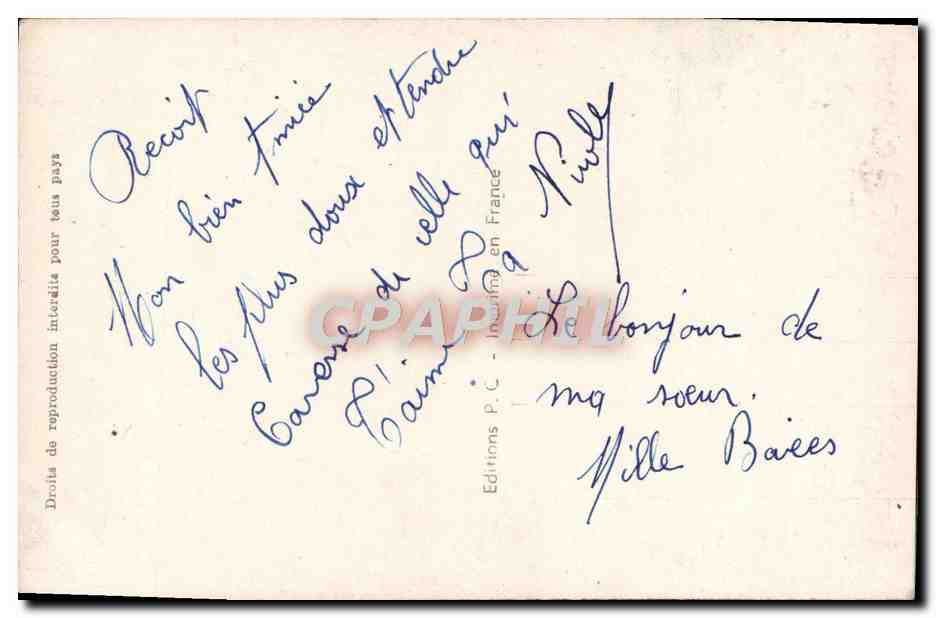 Reçoit
Mon bien
les plus doux et tendre
Caresse de celle qui
t'aime
Nicole
Le bonjour de
ma sœur.
Mille
Droits de reproduction interdits pour tous pays
Editions P. C. - Imprimé en France
CPAPHIL